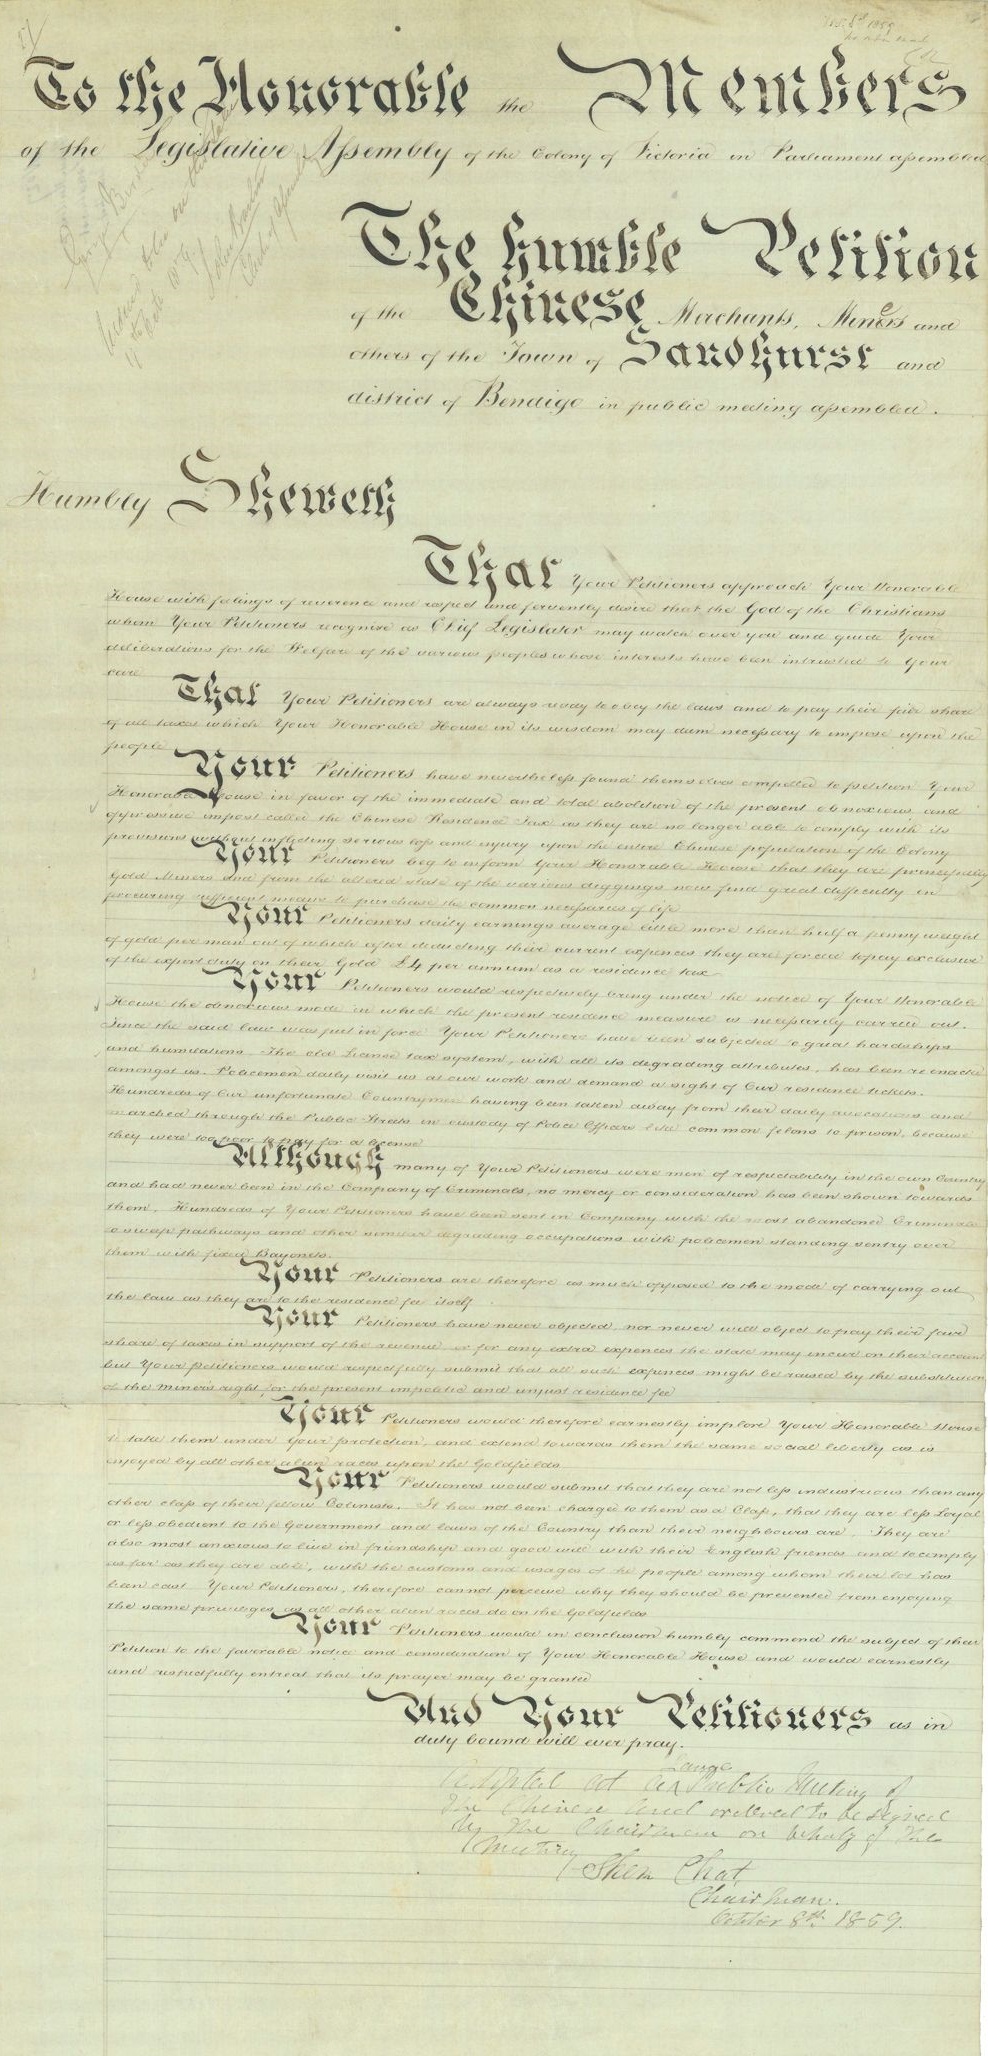 To the Honorable the Members
of the Legislative Assembly of the Colony of Victoria in Parliament assembled
The humble Petition
of the Chinese Merchants, Miners and
others of the Town of Sandhurst and
district of Bendigo in public meeting assembled.
Humbly Sheweth
That Your Petitioners approach Your Honorable
House with feelings of reverence and respect and fervently desire that the God of the Christians
whom Your Petitioners recognise as Chief Legislator may watch over you and guide Your
deliberations for the Welfare of the various peoples whose interests have been intrusted to Your
care
That Your Petitioners are always ready to obey the laws and to pay their fair share
of all taxes which Your Honorable House in its wisdom may deem necessary to impose upon the
people
Your Petitioners have nevertheless found themselves compelled to petition Your
Honorable House in favor of the immediate and total abolition of the present obnoxious and
oppressive impost called the Chinese Residence Tax as they are no longer able to comply with its
provisions without inflicting serious loss and injury upon the entire Chinese population of the Colony
Your Petitioners beg to inform Your Honorable House that they are principally
Gold Miners and from the altered state of the various diggings now find great difficulty in
procuring sufficient means to purchase the common necessaries of life
Your Petitioners daily earnings average little more than half a penny weight
of gold per man out of which after deducting their current expences they are forced to pay exclusive
of the export duty on their Gold £4 per annum as a residence tax
Your Petitioners would respectively bring under the notice of Your Honorable
House the obnoxious mode in which the present residence measure is necessarily carried out.
Since the said law was put in force Your Petitioners have been subjected to great hardships
and humiliations. The old License tax system, with all its degrading attributes, has been re enacted
amongst us. Policemen daily visit us at our work and demand a sight of Our residence tickets.
Hundreds of Our unfortunate Countrymen having been taken away from their daily avocations and
marched through the Public Streets in custody of Police Officers like common felons to prison, because
they were too poor to pay for a license
Although many of Your Petitioners were men of respectability in the own Country
and had never been in the Company of Criminals, no mercy or consideration has been shown towards
them. Hundreds of Your Petitioners have been sent in Company with the most abandoned Criminals
to sweep pathways and other similar degrading occupations with policemen standing sentry over
them with fixed Bayonets.
Your Petitioners are therefore as much opposed to the mode of carrying out
the law as they are to the residence fee itself.
Your Petitioners have never objected, nor never will object to pay their fair
share of taxes in support of the revenue or for any extra expences the state may incur on their account
but Your Petitioners would respectfully submit that all such expences might be raised by the substitution
of the miners right for the present impolitic and unjust residence fee
Your Petitioners would therefore earnestly implore Your Honorable House
to take them under Your protection, and extend towards them the same social liberty as is
enjoyed by all other alien races upon the Goldfields
Your Petitioners would submit that they are not less industrious than any
other class of their fellow Colonists. It has not been charged to them as a Class, that they are less loyal
or less obedient to the Government and laws of the Country than their neighbours are. They are
also most anxious to live in friendship and good will with their English friends and to comply
as far as they are able, with the customs and usages of the people among whom their lot has
been cast. Your Petitioners, therefore cannot perceive why they should be prevented from enjoying
the same privileges as all other alien races do on the Goldfields
Your Petitioners would in conclusion humbly commend the subject of their
Petition to the favorable notice and consideration of Your Honorable House and would earnestly
and respectfully entreat that its prayer may be granted
And Your Petitioners as in
duty bound will ever pray.
Adopted at a Large Public Meeting of
The Chinese and ordered to be signed
by the Chairman on behalf of the
Meeting
Shem Chat
Chairman.
October 8th 1859.